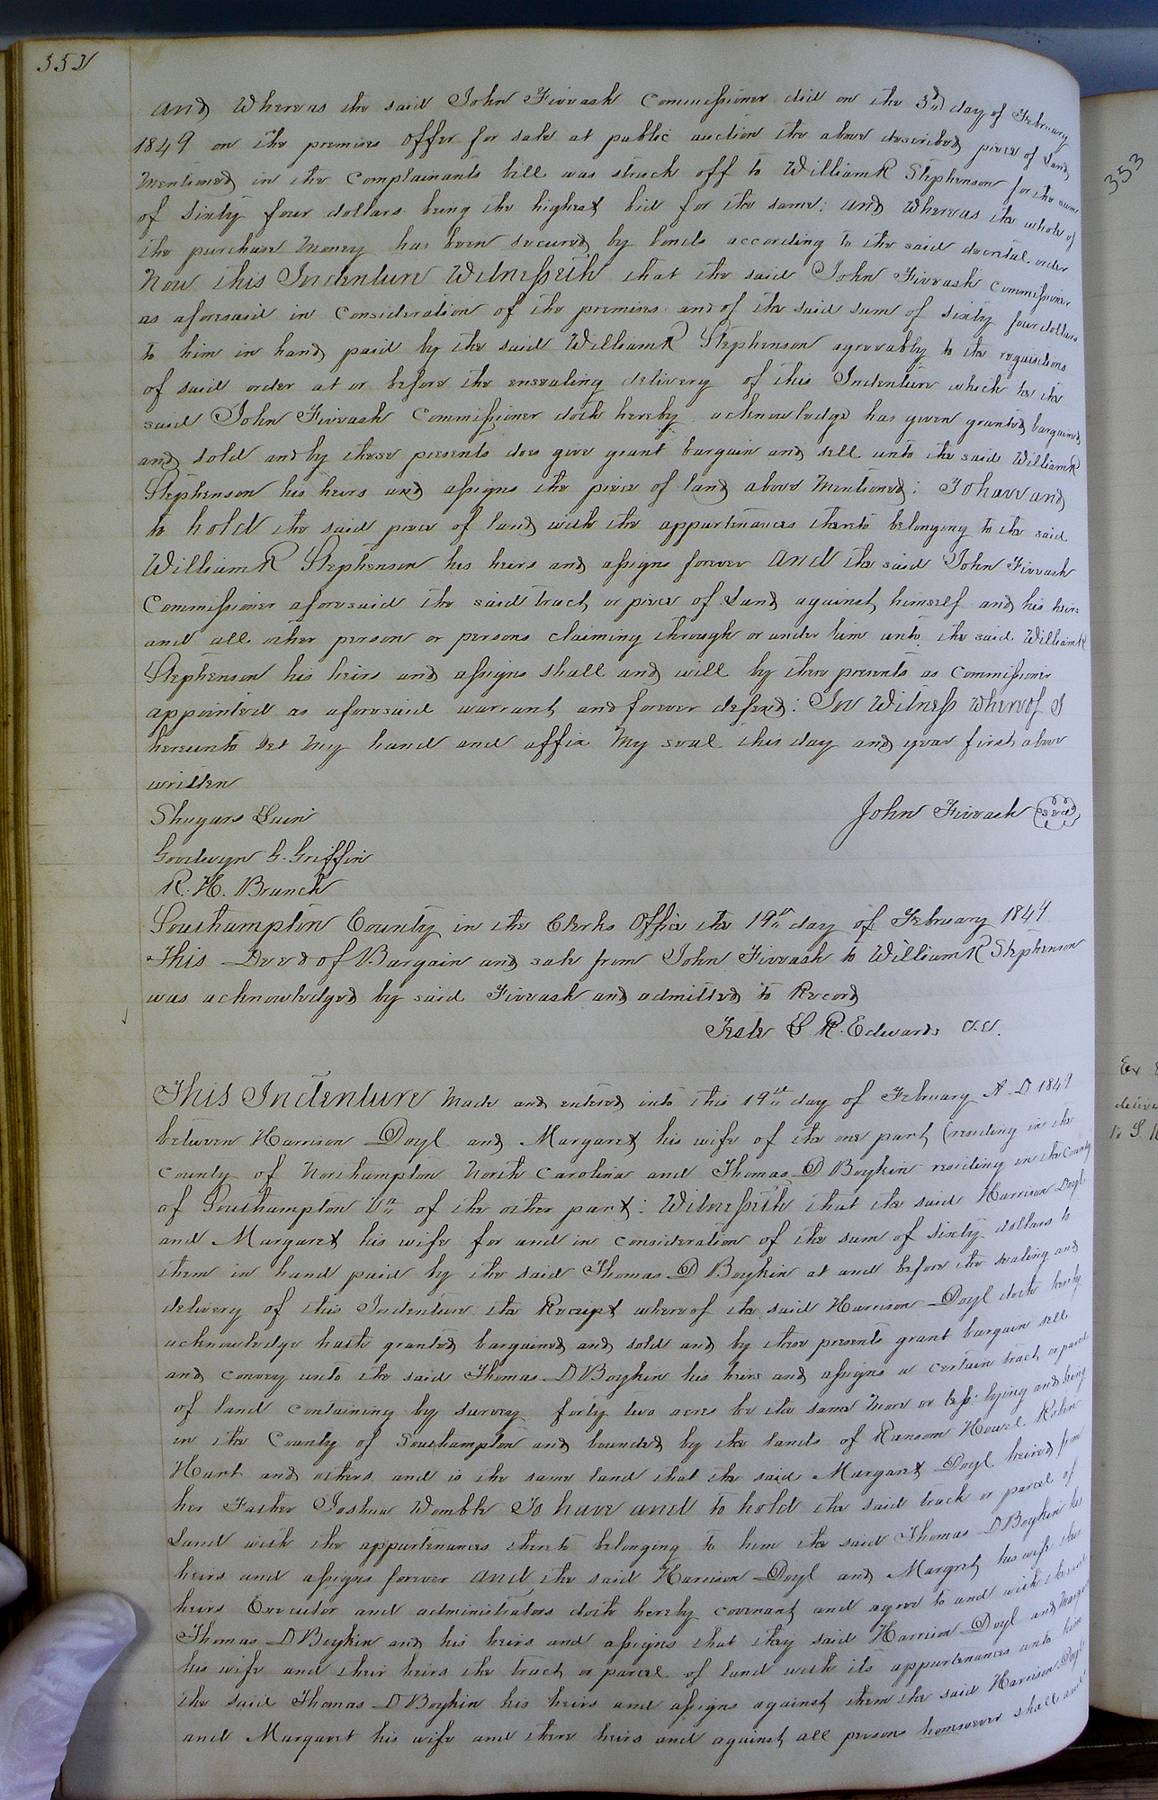 352
And Whereas the said John Fivvash Commissioner did on the 3rd day of February
1849 on the premises offer for sale at public auction the above described piece of Land
Mentioned in the Complainants bill was struck off to William R Stephenson for the sum
of Sixty four dollars being the highest bid for the same: and whereas the whole of
the purchase Money has been secured by bonds according to the said decretal order
Now this Indenture Witnesseth that the said John Fivvash Commissioner
as aforesaid in consideration of the premises and of the said sum of sixty four dollars
to him in hand paid by the said William R Stephenson agreeably to the requisitions
of said order at or before the ensealing delivery of this Indenture which he the
said John Fivvash Commissioner doth hereby acknowledge has given granted bargained
and sold and by these presents does give grant bargain and sell unto the said William R
Stephenson his heirs and assigns the piece of land above Mentioned: To have and
to hold the said piece of land with the appurtenances thereto belonging to the said
William R Stephenson his heirs and assigns forever And the said John Fivvash
Commissioner aforesaid the said tract or piece of Land against himself and his heirs
and all other person or persons claiming through or under him unto the said William R
Stephenson his heirs and assigns shall and will by these presents as Commissioner
appointed as aforesaid warrant and forever defend: In Witness whereof I
hereunto Set My hand and affix My seal this day and year first above
written
Shugars Bain
John Fivvash seal
Goodwyn G. Griffin
R. H. Branch
Southampton County in the Clerks Office the 19th day of February 1849
This Deed of Bargain and sale from John Fivvash to William R Stephenson
was acknowledged by said Fivvash and admitted to Record
Teste L R. Edwards C.C.
This Indenture Made and entered into this 19th day of February A. D 1849
between Harrison Doyl and Margaret his wife of the one part (residing in the
county of Northampton North Carolina and Thomas D Boykin residing in the County
of Southampton Va of the other part: Witnesseth that the said Harrison Doyl
and Margaret his wife for and in consideration of the sum of sixty dollars to
them in hand paid by the said Thomas D Boykin at and before the sealing and
delivery of this Indenture the Receipt whereof the said Harrison Doyl doth hereby
acknowledge hath granted bargained and sold and by these presents grant bargain sell
and convey unto the said Thomas D Boykin his heirs and assigns a certain tract or parcel
of land containing by survey forty two acres be the same More or less: lying and being
in the County of Southampton and bounded by the lands of Ransom Howel Robin
Hart and others and is the same land that the said Margaret Doyl heired from
her Father Joshua Womble To have and to hold the said track or parcel of
Land with the appurtenances thereto belonging to him the said Thomas D Boykin his
heirs and assigns forever and the said Harrison Doyl and Margret his wife their
heirs Executor and administrators doth hereby covenant and agree to and with the said
Thomas D Boykin and his heirs and assigns that they said Harrison Doyl and Margret
his wife and their heirs the tract or parcel of land with its appurtenances unto him
the said Thomas D Boykin his heirs and assigns against them the said Harrison Doyl
and Margaret his wife and there heirs and against all persons homsoever shall and
353